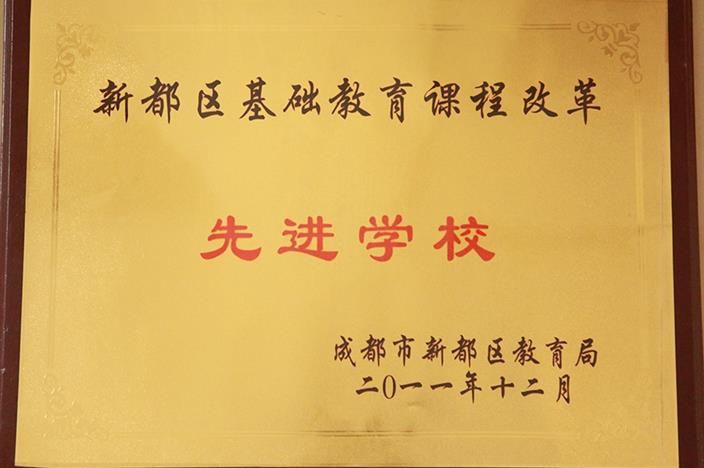 新都区基础教育课程改革
先进学校
成都市新都区教育局
二〇一一年十二月